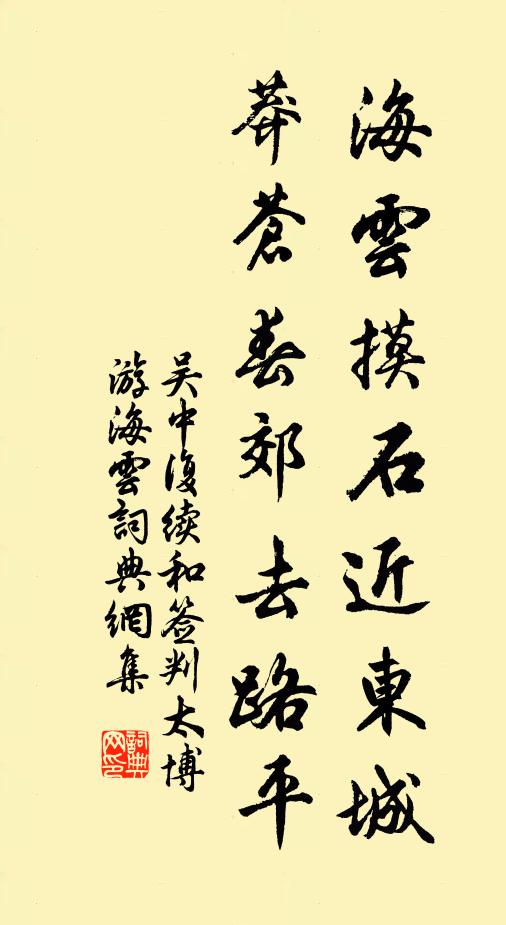 海雲摸石近東城
莽蒼春郊去路平
吴中復续和签判太博
游海雲詞典網集
詞典网印